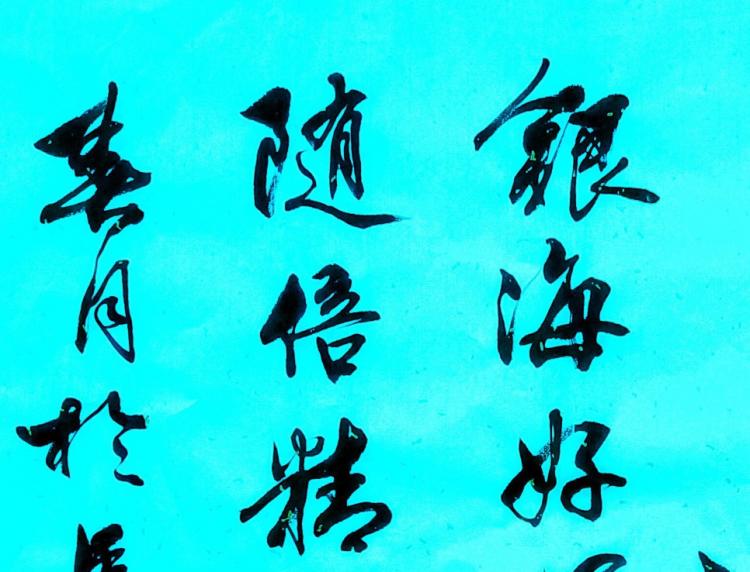 銀海好
随倍精
春月於